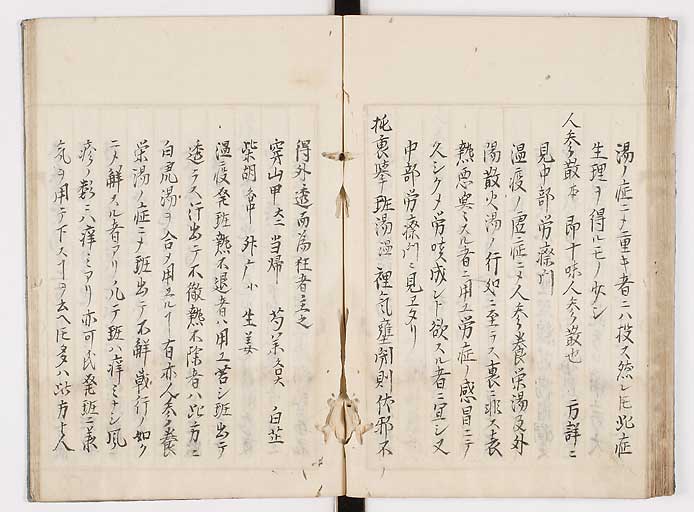 湯ノ症ニメ重キ者ニハ投ス然レ𪜈此症
生理ヲ得ルモノ少シ
人参散 即十味人参散也 方詳ニ
見中部労療門
温疫ノ虚症ニメ人参養栄湯及外
陽散火湯ノ行如ニ至テス裏ニ非ス表
熱悪寒ミスル者ニ用ユ労症ノ感冒ニテ
久シクメ労咳成ント欲スル者ニ宜シ又
中部労療門ニ見ヱタリ
托裏挙斑湯 温 裡気壅閉則伏邪不
得外透而為斑者主之
穿山甲 大 当帰 芍薬 各 白芷
柴胡 各中 升广 小 生姜
温疫発斑熱不退者ハ用ユ苔シ斑出テ
透テス汗出テ不徹熱不除者ハ此方ニ
白虎湯ヲ合メ用ユルヿ有亦人参養
栄湯ノ症ニメ斑出テ不解戦行ノ如ク
ニメ解スル者アリ凡テ斑ハ痒ミナシ風
疹ノ類ニハ痒ミアリ亦可成発斑ニ兼
気ヲ用テ下スヿヲ去ヘ𪜈多ハ此方